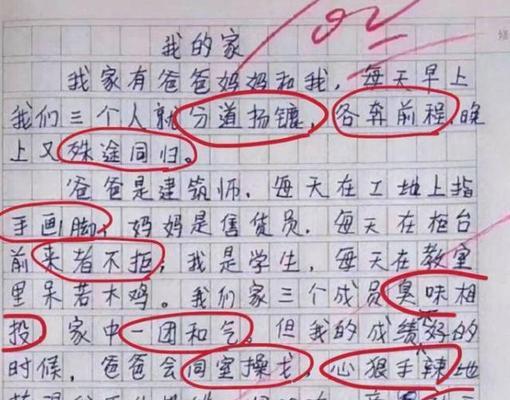 我的家
我家有爸爸妈妈和我，每天早上
我们三个人就分道扬镳，各奔前程，晚
上又殊途同归。
爸爸是建筑师，每天在工地上指
手画脚，妈妈是售货员，每天在柜台
前来者不拒；我是学生，每天在教室
里呆若木鸡。我们家三个成员臭味相
投，家中一团和气。但我的成绩不好的
时候，爸爸会同室操戈，心狠手辣地